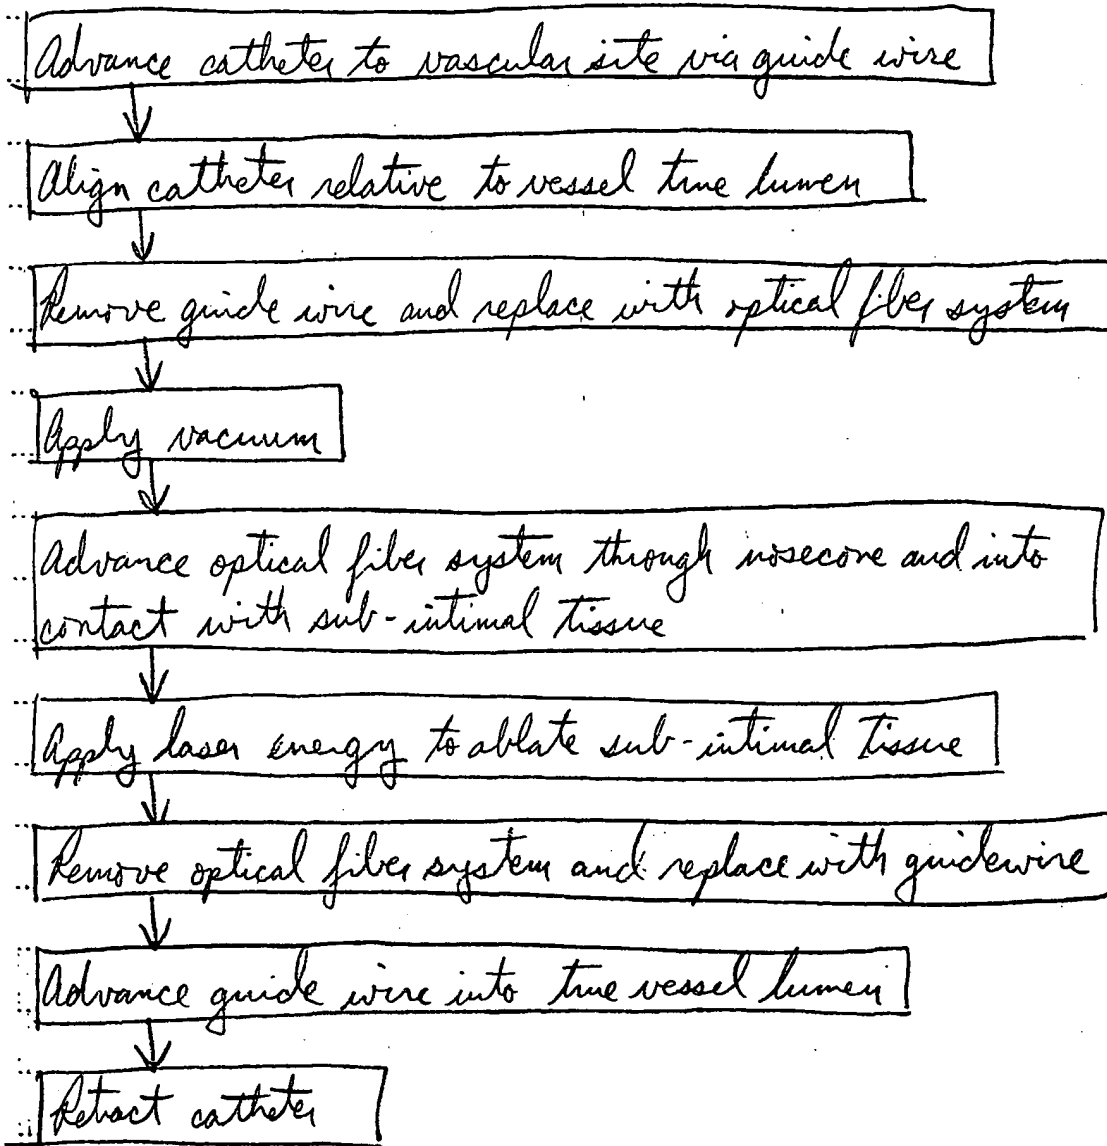 Advance catheter to vascular site via guide wire
Align catheter relative to vessel true lumen
Remove guide wire and replace with optical fiber system
Apply vacuum
Advance optical fiber system through nosecone and into
contact with sub-intimal tissue
Apply laser energy to ablate sub-intimal tissue
Remove optical fiber system and replace with guidewire
Advance guide wire into true vessel lumen
Retract catheter